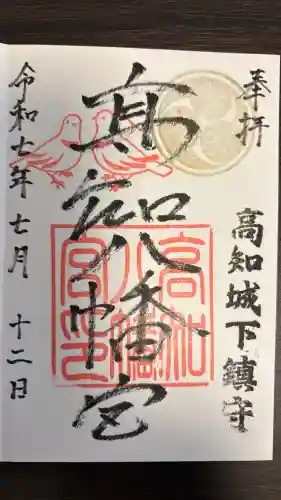 奉拝
高知城下鎮守
高知八幡宮
高知
八幡
宮印
令和七年七月十二日